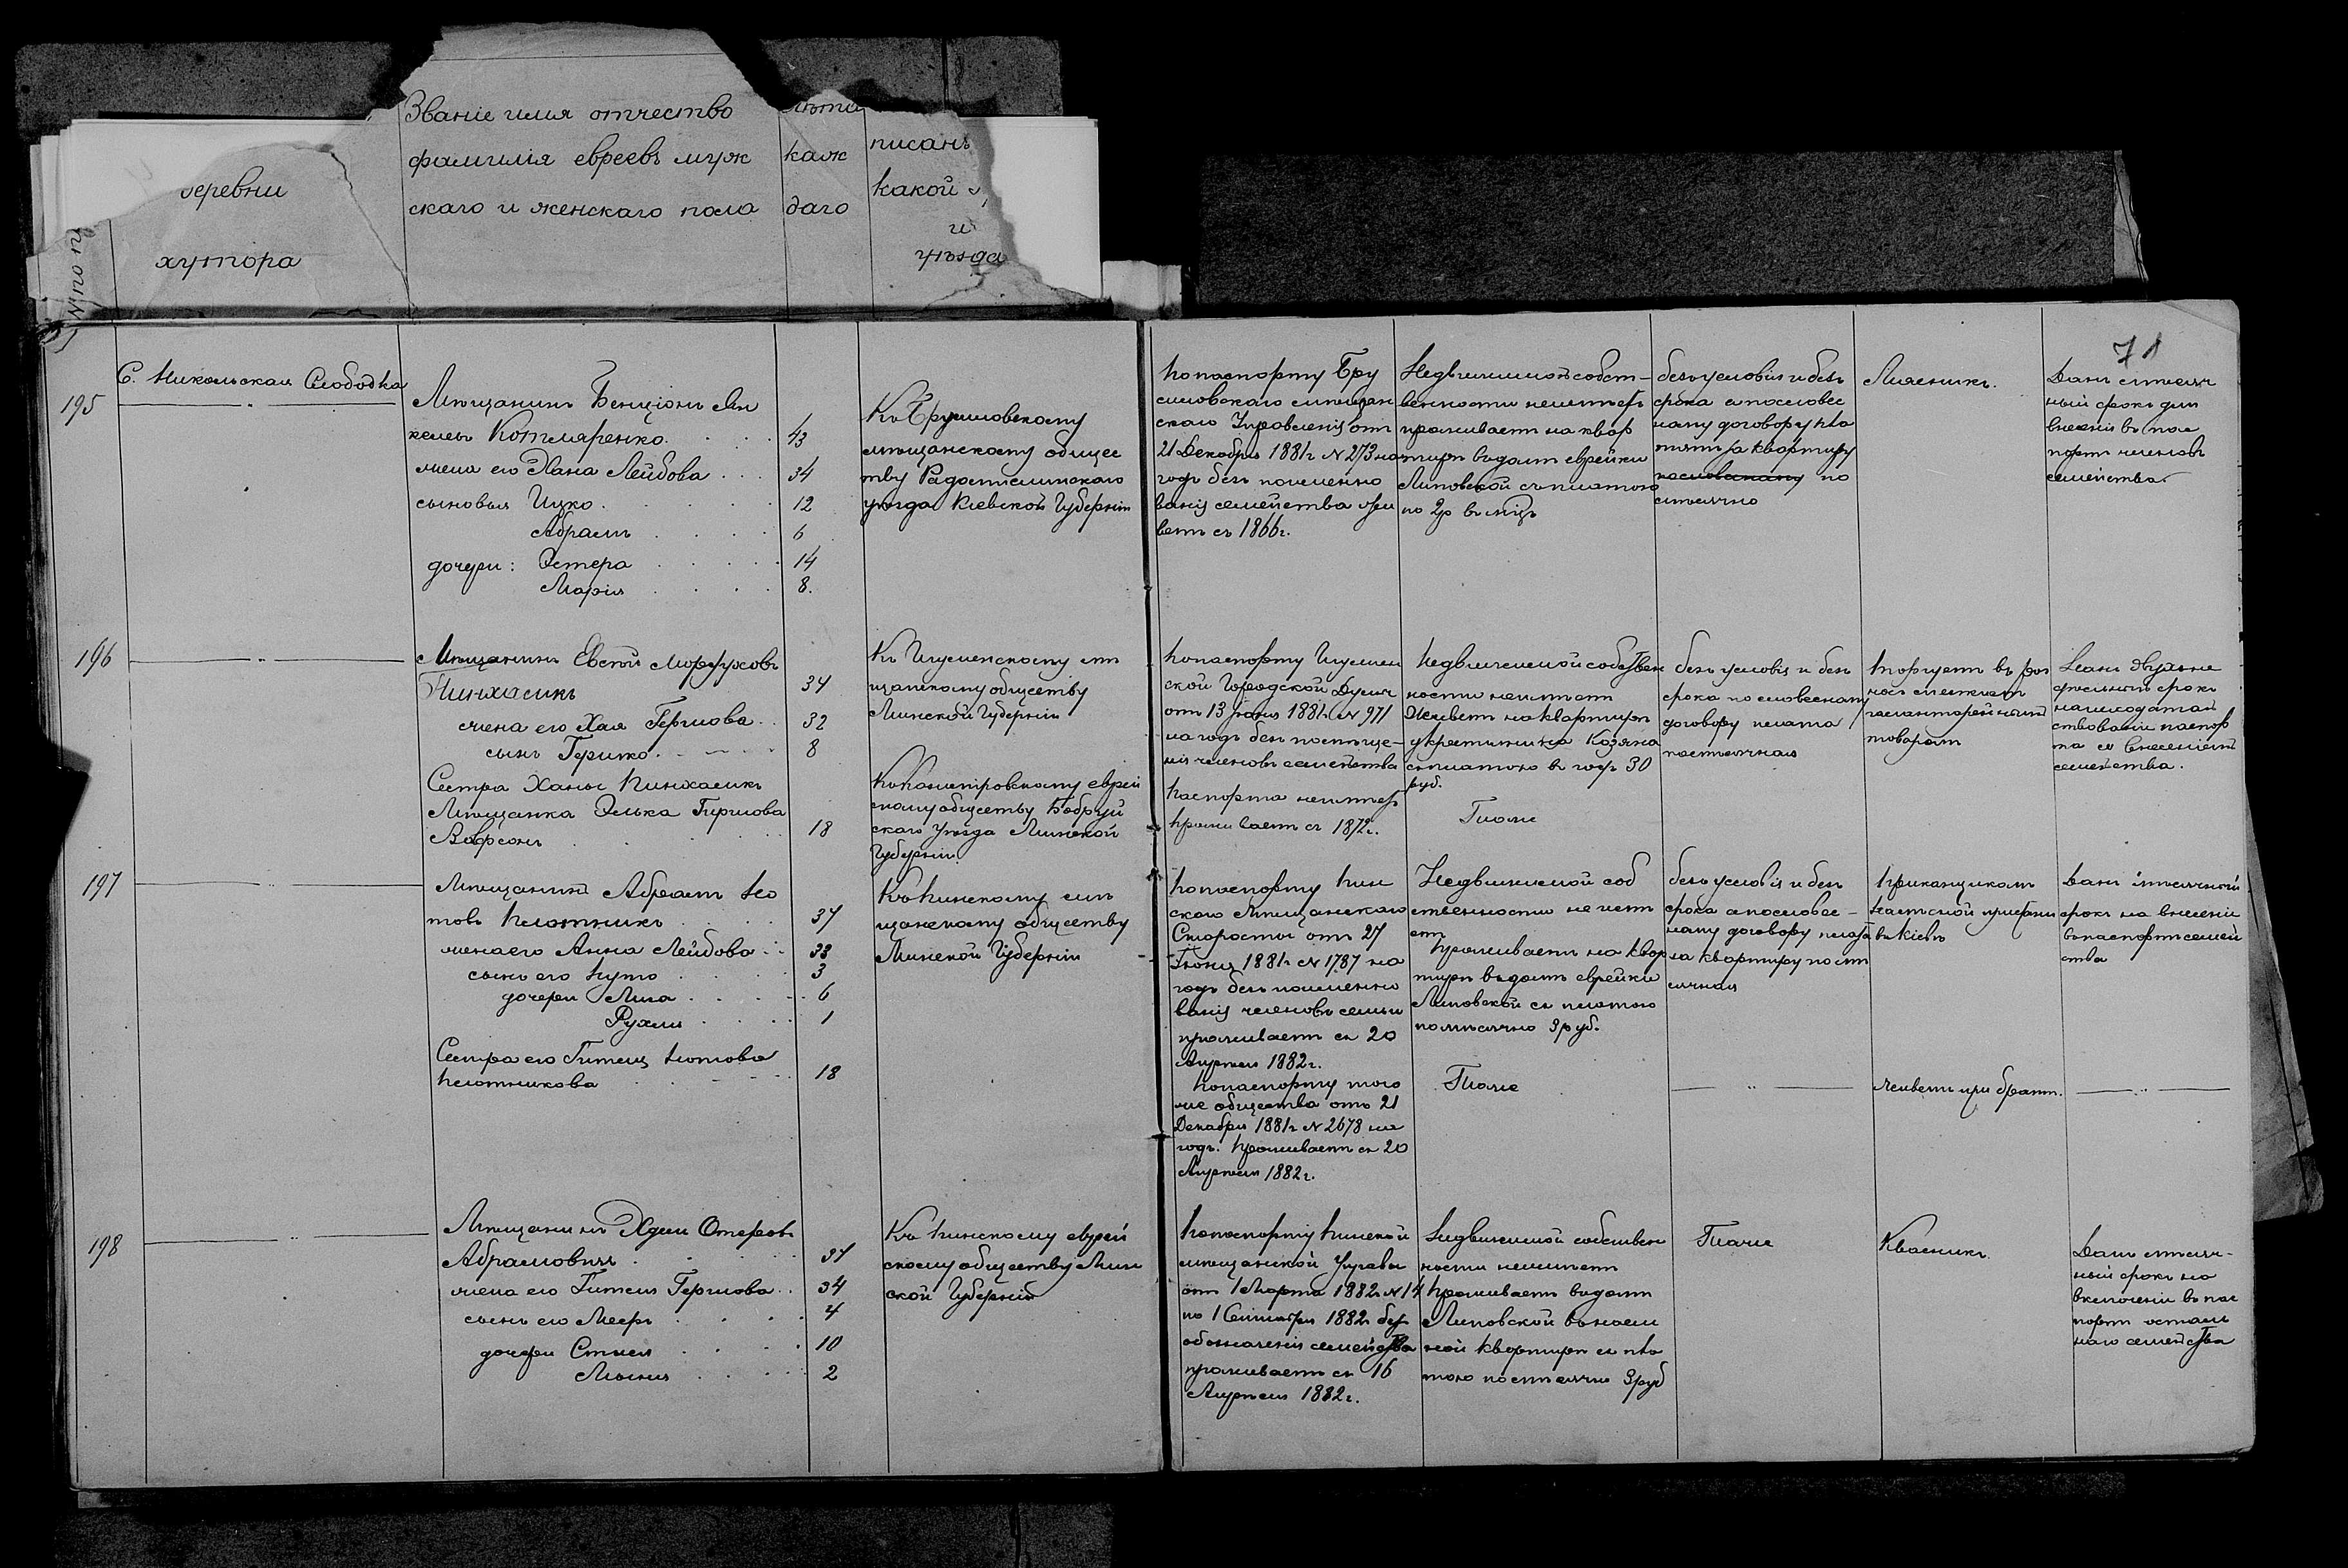 Званіе имя отчество
фамилія евреевъ муж
скаго и женскаго пола
лѣта
каж
даго
писанъ
какой
и
уѣзда
деревни
хутора
№ по п
71
195
С. Никольская Слободка
Мѣщанинъ Бенціонъ Ян
келевъ Котляренко 43
жена его Хана Лейбова 34
сыновья Ицко 12
Абрамъ 6
дочери: Эстера 14
Марія 8.
Къ Брусиловскому
мѣщанскому общес
тву Радомысльскаго
уѣзда Кіевской Губерніи
По паспорту Бру
силовскаго мѣщан
скаго Управленія отъ
21 Декабря 1881 г № 273 на
годъ безъ поимено
ванія семейства жи
ветъ съ 1866 г.
Недвижимой собст-
венности неимѣетъ
проживаетъ на квар
тирѣ въ домѣ еврейки
Липовской съ платою
по 2 р въ мѣсцъ
безъ условія и безъ
срока а по словес
ному договору пла
тятъ за квартиру
по
мѣсячно
Мясникъ.
Данъ мѣсяч
ный срокъ для
внесенія въ пас
портъ членовъ
семейства.
196
Мѣщанинъ Евсей Мордуховъ
Пинхасикъ 34
жена его Хая Гершова 32
сынъ Гершко 8
Сестра Ханы Пинхасикъ
Мѣщанка Элька Гершова
Вовфсонъ 18
Къ Игуменскому мѣ
щанскому обществу
Минской Губерніи
еврей
скому обществу Бобруй
скаго Уѣзда Минской
Губерніи.
По паспорту Игумен
ской Городской Думы
отъ 13 Іюня 1881 г № 971
на годъ безъ помѣще-
нія членовъ семейства
Паспорта неимѣетъ
проживаетъ съ 1872 г.
Недвижимой собствен
ности неимѣетъ
Живетъ на квартирѣ
у крестьянина Козяка
съ платою въ годъ 30
руб.
Тоже
безъ условія и безъ
срока по словесному
договору плата
помѣсячная
Торгуетъ въ раз
носъ мѣлкимъ
галантерейнымъ
товаромъ
Данъ двухне
дѣльный срокъ
на исходатай
ствованіе паспор
та съ внесеніемъ
семейства.
197
Мѣщанинъ Абрамъ Но
товъ Плотникъ 37
жена его Анна Лейбова 33
сынъ его Нуто 3
дочери Лиза 6
Рухля 1
Сестра его Гитля Нотова
Плотникова 18
Къ Пинскому мѣ
щанскому обществу
Минской Губерніи
По паспорту Пин
скаго Мѣщанскаго
Старосты отъ 27
Іюня 1881 г № 1787 на
годъ безъ поимено
ванія членовъ семьи
проживаетъ съ 20
Апрѣля 1882 г.
По паспорту того
же общества отъ 21
Декабря 1881 г № 2678 на
годъ. Проживаетъ съ 20
Апрѣля 1882 г.
Недвижимой соб
ственности неимѣ
етъ
Проживаетъ на квар
тирѣ въ домѣ еврейки
Липовской съ платою
помѣсячно 3 руб.
Тоже
безъ условія и безъ
срока а по словес-
ному договору плата
за квартиру помѣ
сячная
Прикащикомъ
на лѣсной пристани
въ Кіевѣ
Живетъ при братѣ.
Данъ мѣсячный
срокъ на внесеніе
въ паспортъ семей
ства
198
Мѣщанинъ
Абрамовичъ 37
жена его Гитля Гершова 34
сынъ его Мееръ 4
дочери Стыся 10
Мыня 2
Къ Пинскому еврей
скому обществу Мин
ской Губерніи
По паспорту Пинской
мѣщанской Управы
отъ 1 Марта 1882 г № 14
по 1 Сентября 1882 г безъ
обозначенія семейства
проживаетъ съ 16
Апрѣля 1882 г.
Недвижимой собствен
ности неимѣетъ
Проживаетъ въ домѣ
Липовской въ наем
ной квартирѣ съ пла
тою помѣсячно 3 руб
Тоже
Квасникъ
Данъ мѣсяч-
ный срокъ на
включеніе въ пас
портъ осталь
наго семейства